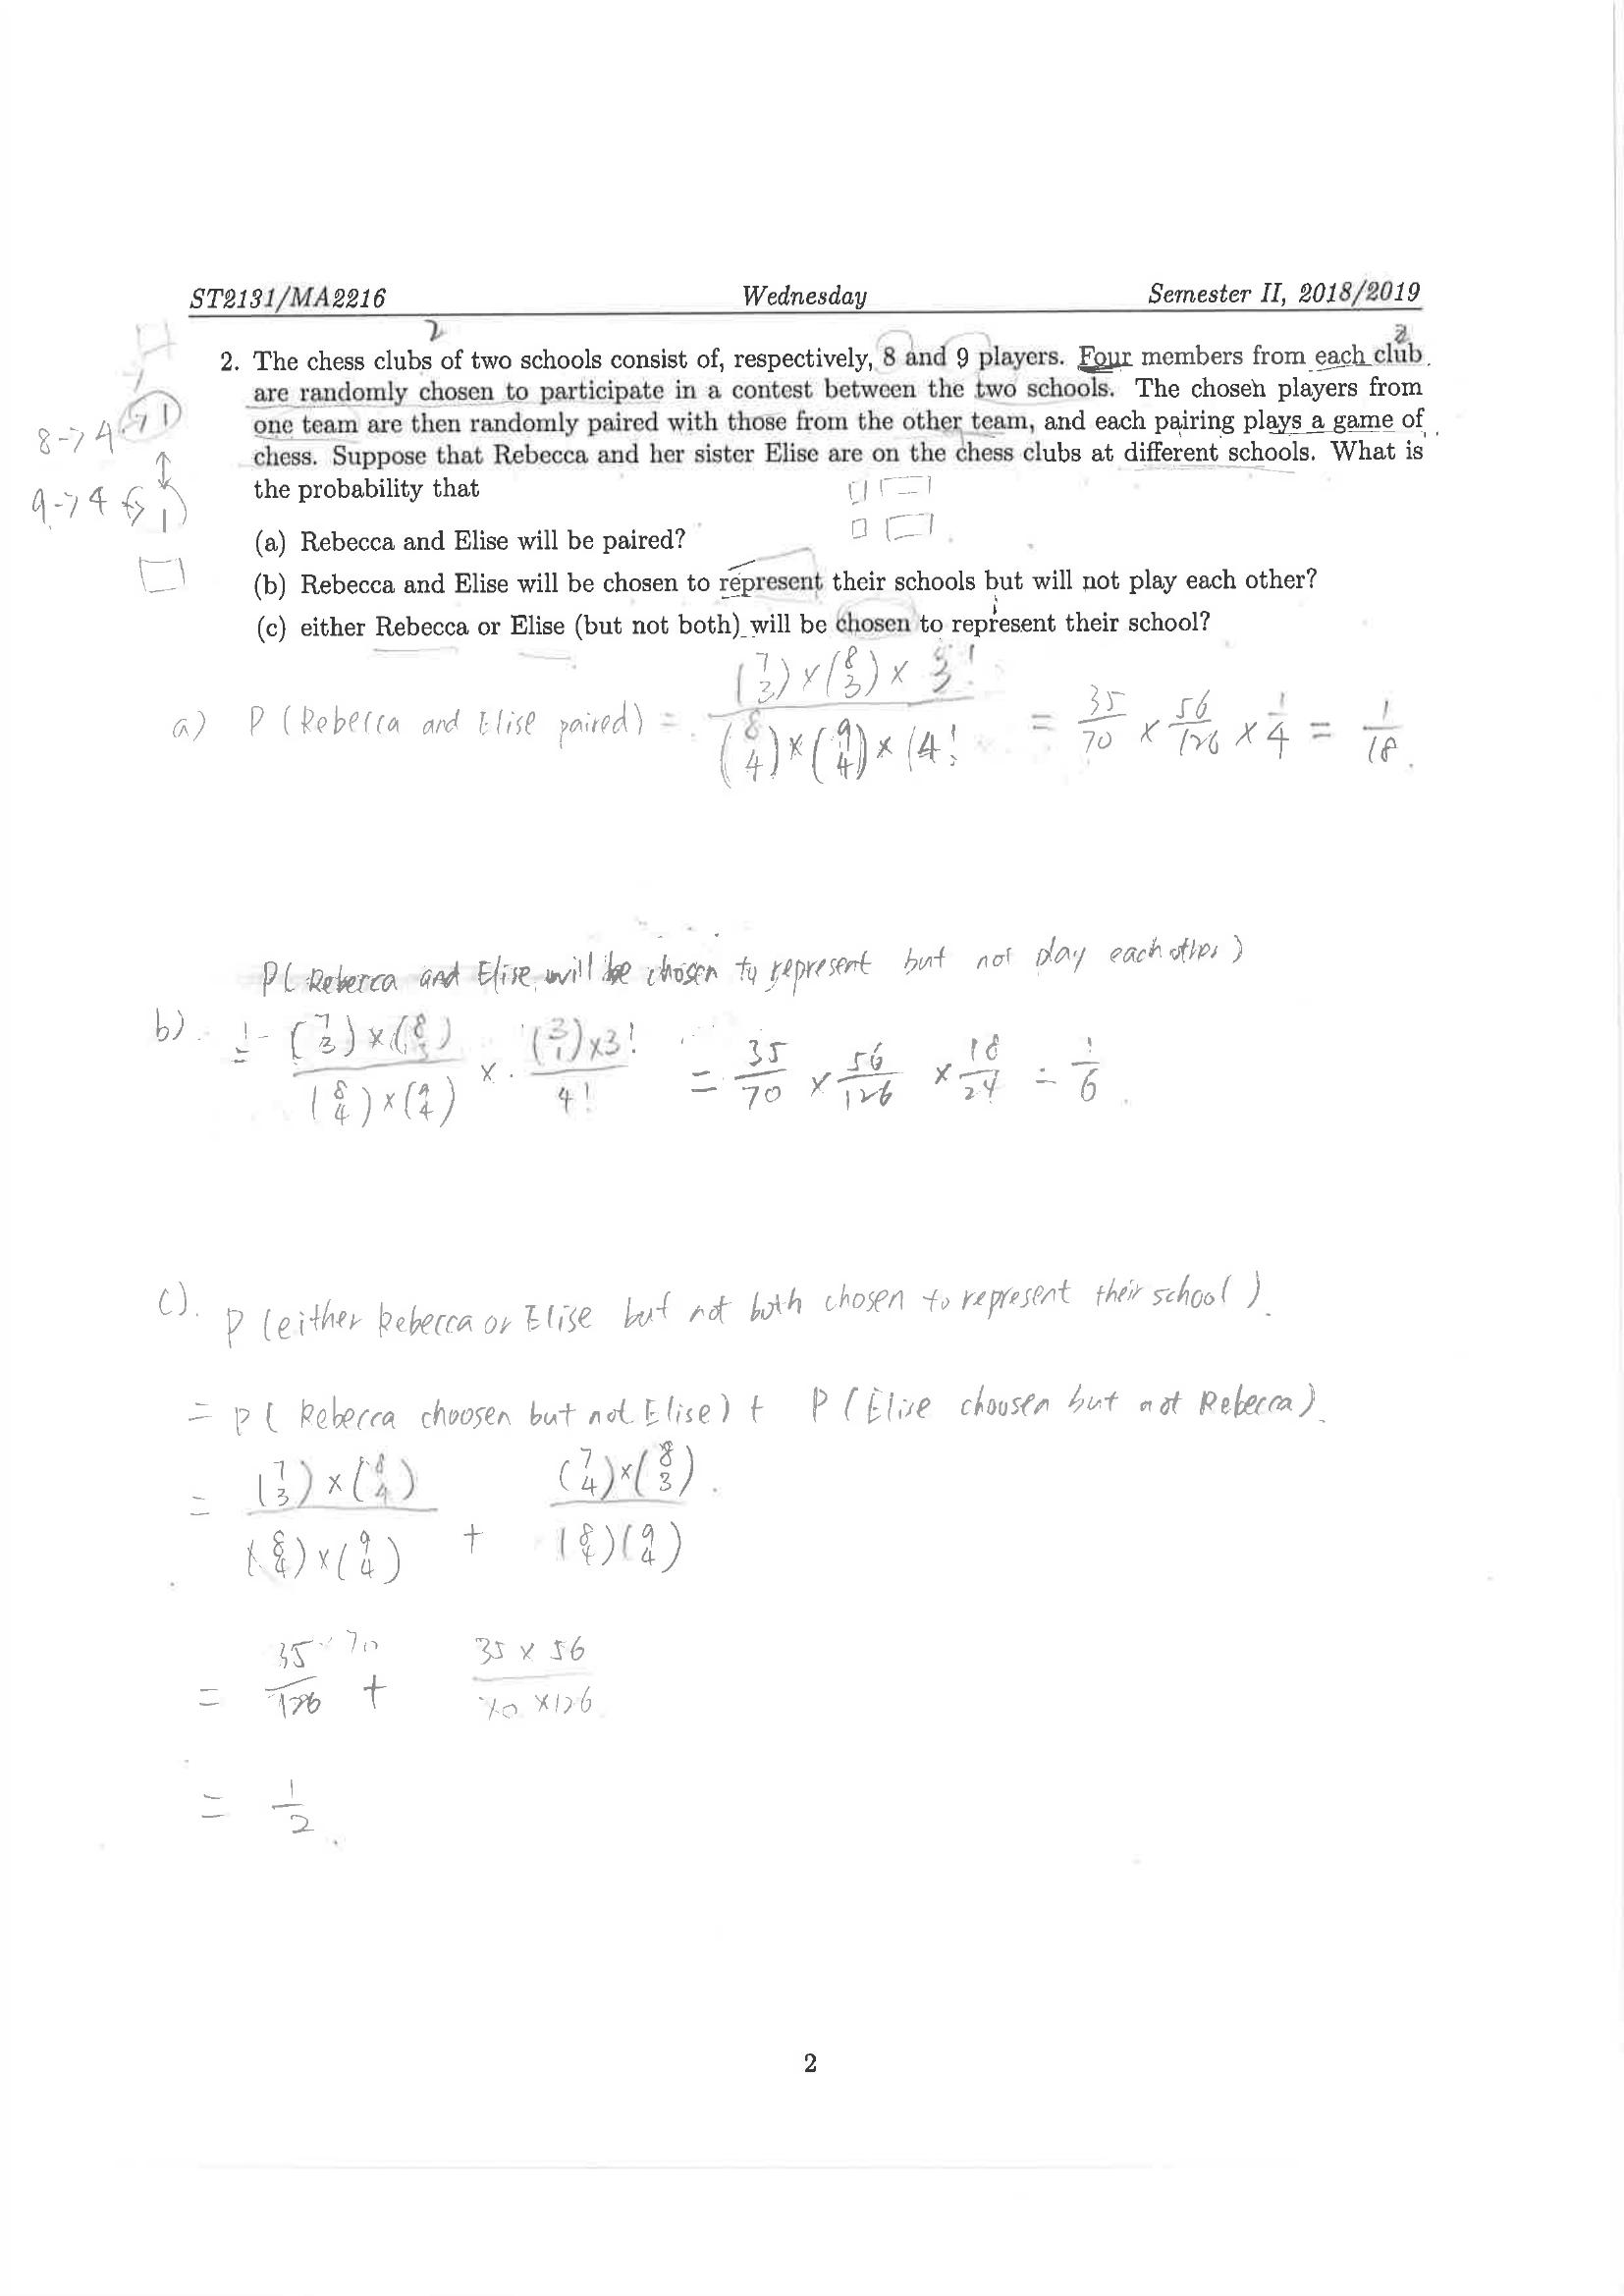 ST2131/MA2216 Wednesday Semester II, 2018/2019
2 2
2. The chess clubs of two schools consist of, respectively, 8 and 9 players. Four members from each club
are randomly chosen to participate in a contest between the two schools. The chosen players from
one team are then randomly paired with those from the other team, and each pairing plays a game of
chess. Suppose that Rebecca and her sister Elise are on the chess clubs at different schools. What is
the probability that
8 -> 4 -> 1
9 -> 4 -> 1
(a) Rebecca and Elise will be paired?
(b) Rebecca and Elise will be chosen to represent their schools but will not play each other?
(c) either Rebecca or Elise (but not both) will be chosen to represent their school?
a) P (Rebecca and Elise paired) = (7 3) × (8 3) × 3! / (8 4) × (9 4) × (4! = 35/70 × 56/126 × 1/4 = 1/18.
P( Rebecca and Elise will be chosen to represent but not play each other)
b). = (7 3) × (8 3) / (8 4) × (9 4) × (3 1) × 3! / 4! = 35/70 × 56/126 × 18/24 = 1/6.
c). P (either Rebecca or Elise but not both chosen to represent their school).
= P( Rebecca choosen but not Elise) + P (Elise choosen but not Rebecca).
= (7 3) × (8 4) / (8 4) × (9 4) + (7 4) × (8 3) / (8 4)(9 4).
= 35 × 70 / 126 + 35 × 56 / 70 × 126
= 1/2.
2